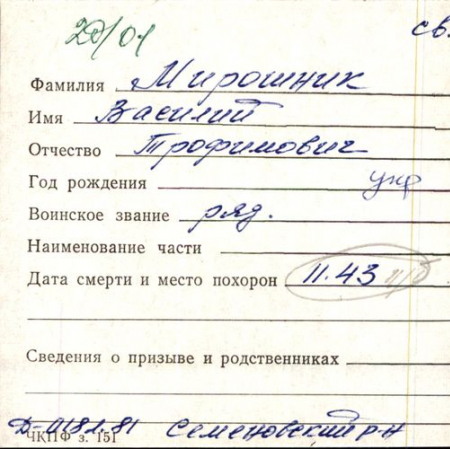 20/01 св.
Фамилия Мирошник
Имя Василий
Отчество Трофимович
Год рождения укр
Воинское звание ряд.
Наименование части
Дата смерти и место похорон 11.43 п/п
Сведения о призыве и родственниках
Семеновский р-н
ЧКПФ з. 151